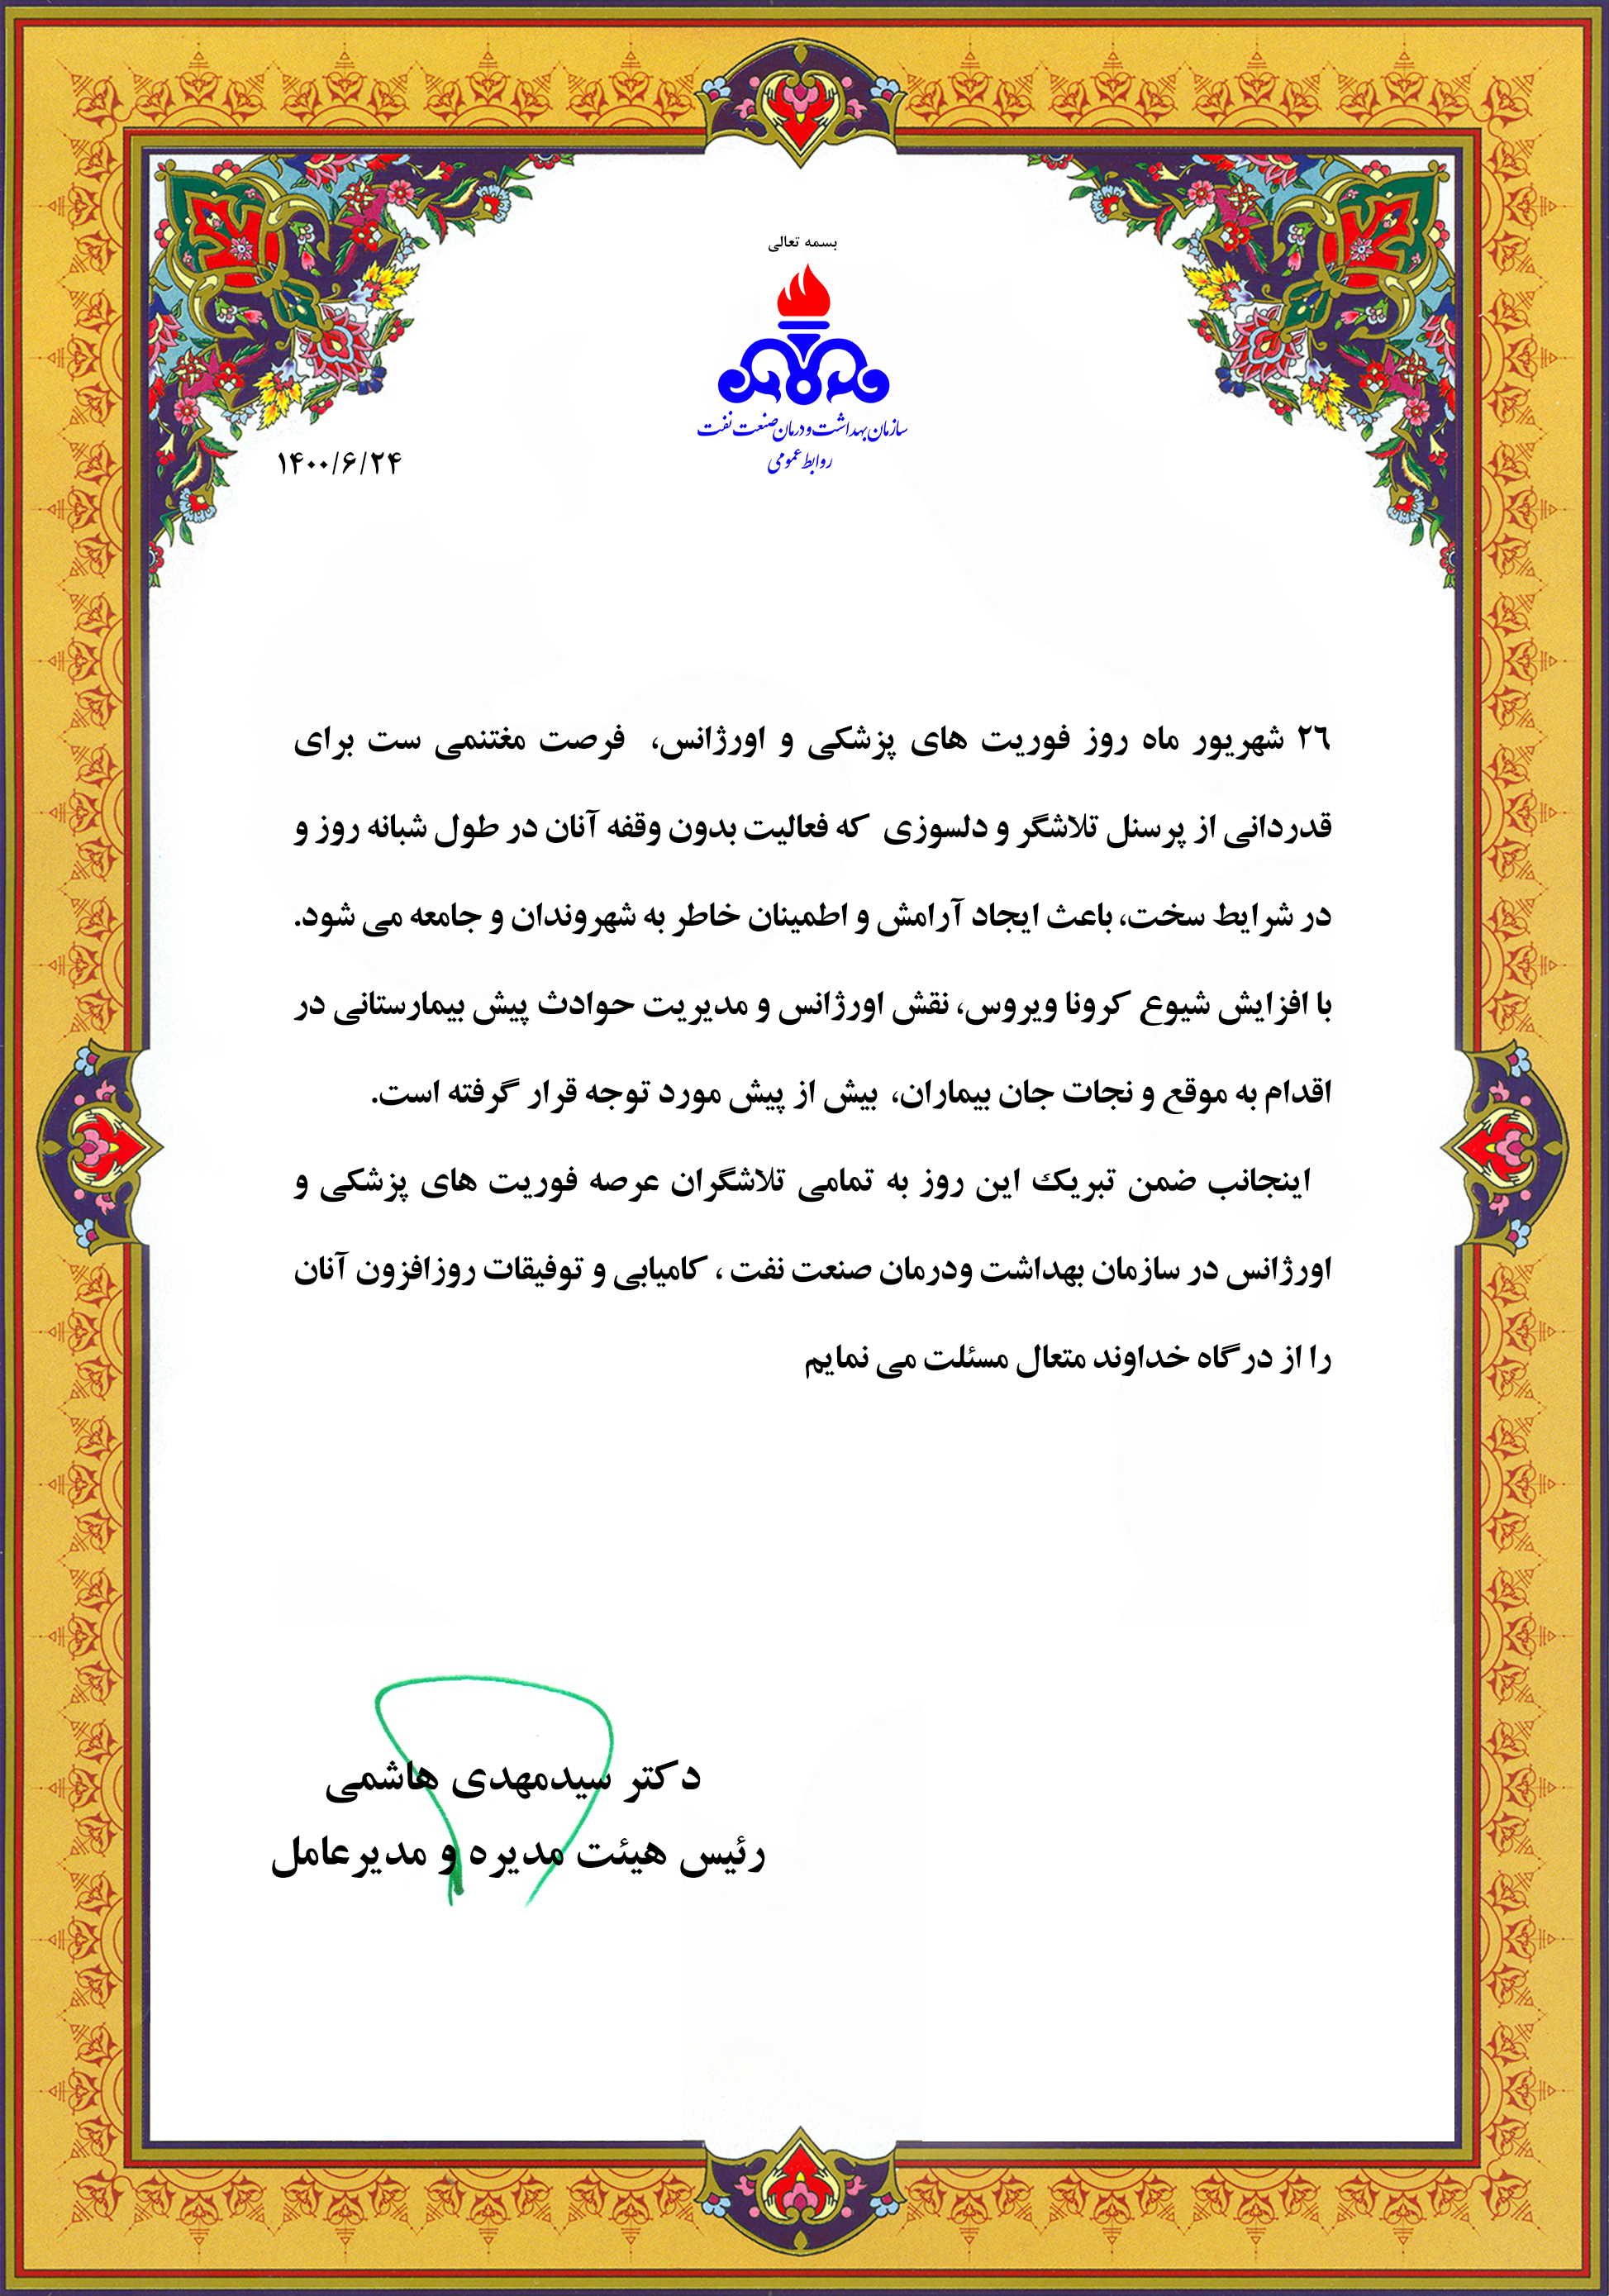 بسمه تعالی
سازمان بهداشت و درمان صنعت نفت
روابط عمومی
۱۴۰۰/۶/۲۴
۲۶ شهریور ماه روز فوریت های پزشکی و اورژانس، فرصت مغتنمی ست برای
قدردانی از پرسنل تلاشگر و دلسوزی که فعالیت بدون وقفه آنان در طول شبانه روز و
در شرایط سخت، باعث ایجاد آرامش و اطمینان خاطر به شهروندان و جامعه می شود.
با افزایش شیوع کرونا ویروس، نقش اورژانس و مدیریت حوادث پیش بیمارستانی در
اقدام به موقع و نجات جان بیماران، بیش از پیش مورد توجه قرار گرفته است.
اینجانب ضمن تبریک این روز به تمامی تلاشگران عرصه فوریت های پزشکی و
اورژانس در سازمان بهداشت ودرمان صنعت نفت ، کامیابی و توفیقات روزافزون آنان
را از درگاه خداوند متعال مسئلت می نمایم
دکتر سیدمهدی هاشمی
رئیس هیئت مدیره و مدیرعامل